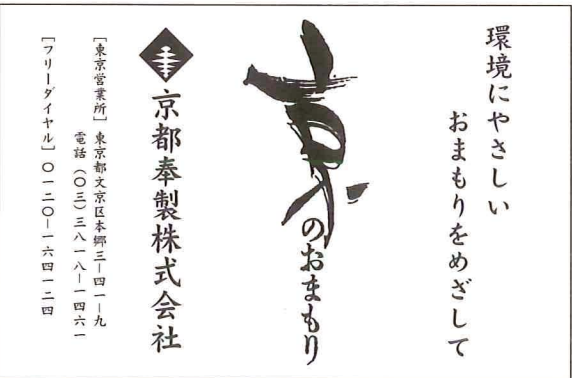 環境にやさしい
おまもりをめざして
京のおまもり
京都奉製株式会社
［東京営業所］東京都文京区本郷三―四一―九
電話（〇三）三八一八―一四六一
［フリーダイヤル］〇一二〇―一六四一二四